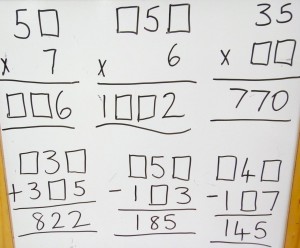 5□ □5□ 35
x 7 x 6 x □□
□□6 1□□2 770
□3□ □5□ □4□
+3□5 -1□3 -1□7
822 185 145